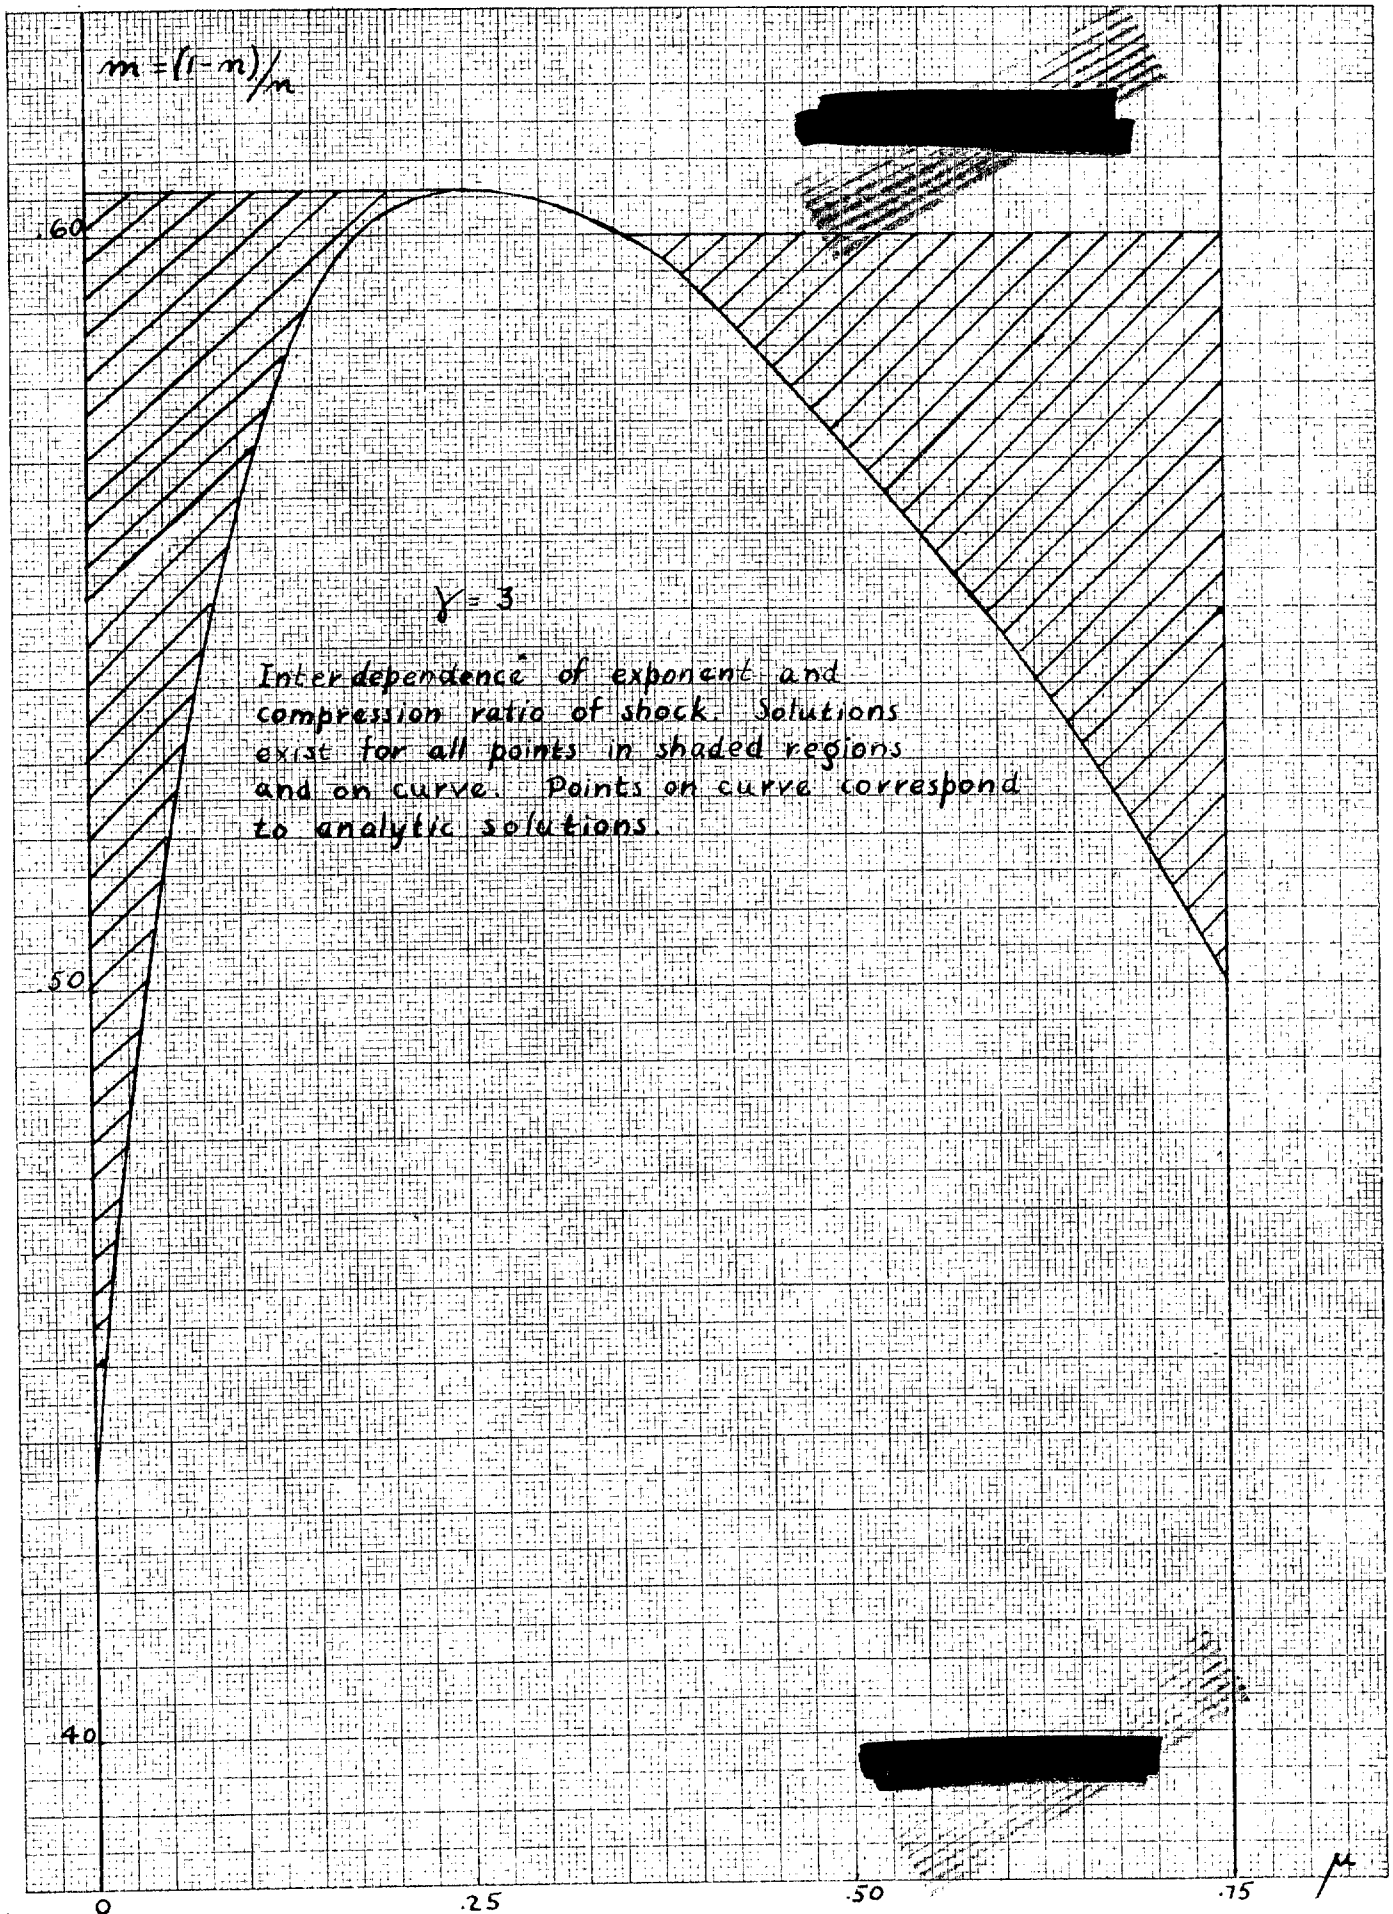 m = (1-n)/n
.60
γ = 3
Interdependence of exponent and
compression ratio of shock. Solutions
exist for all points in shaded regions
and on curve. Points on curve correspond
to analytic solutions.
.50
.40
μ
0
.25
.50
.75